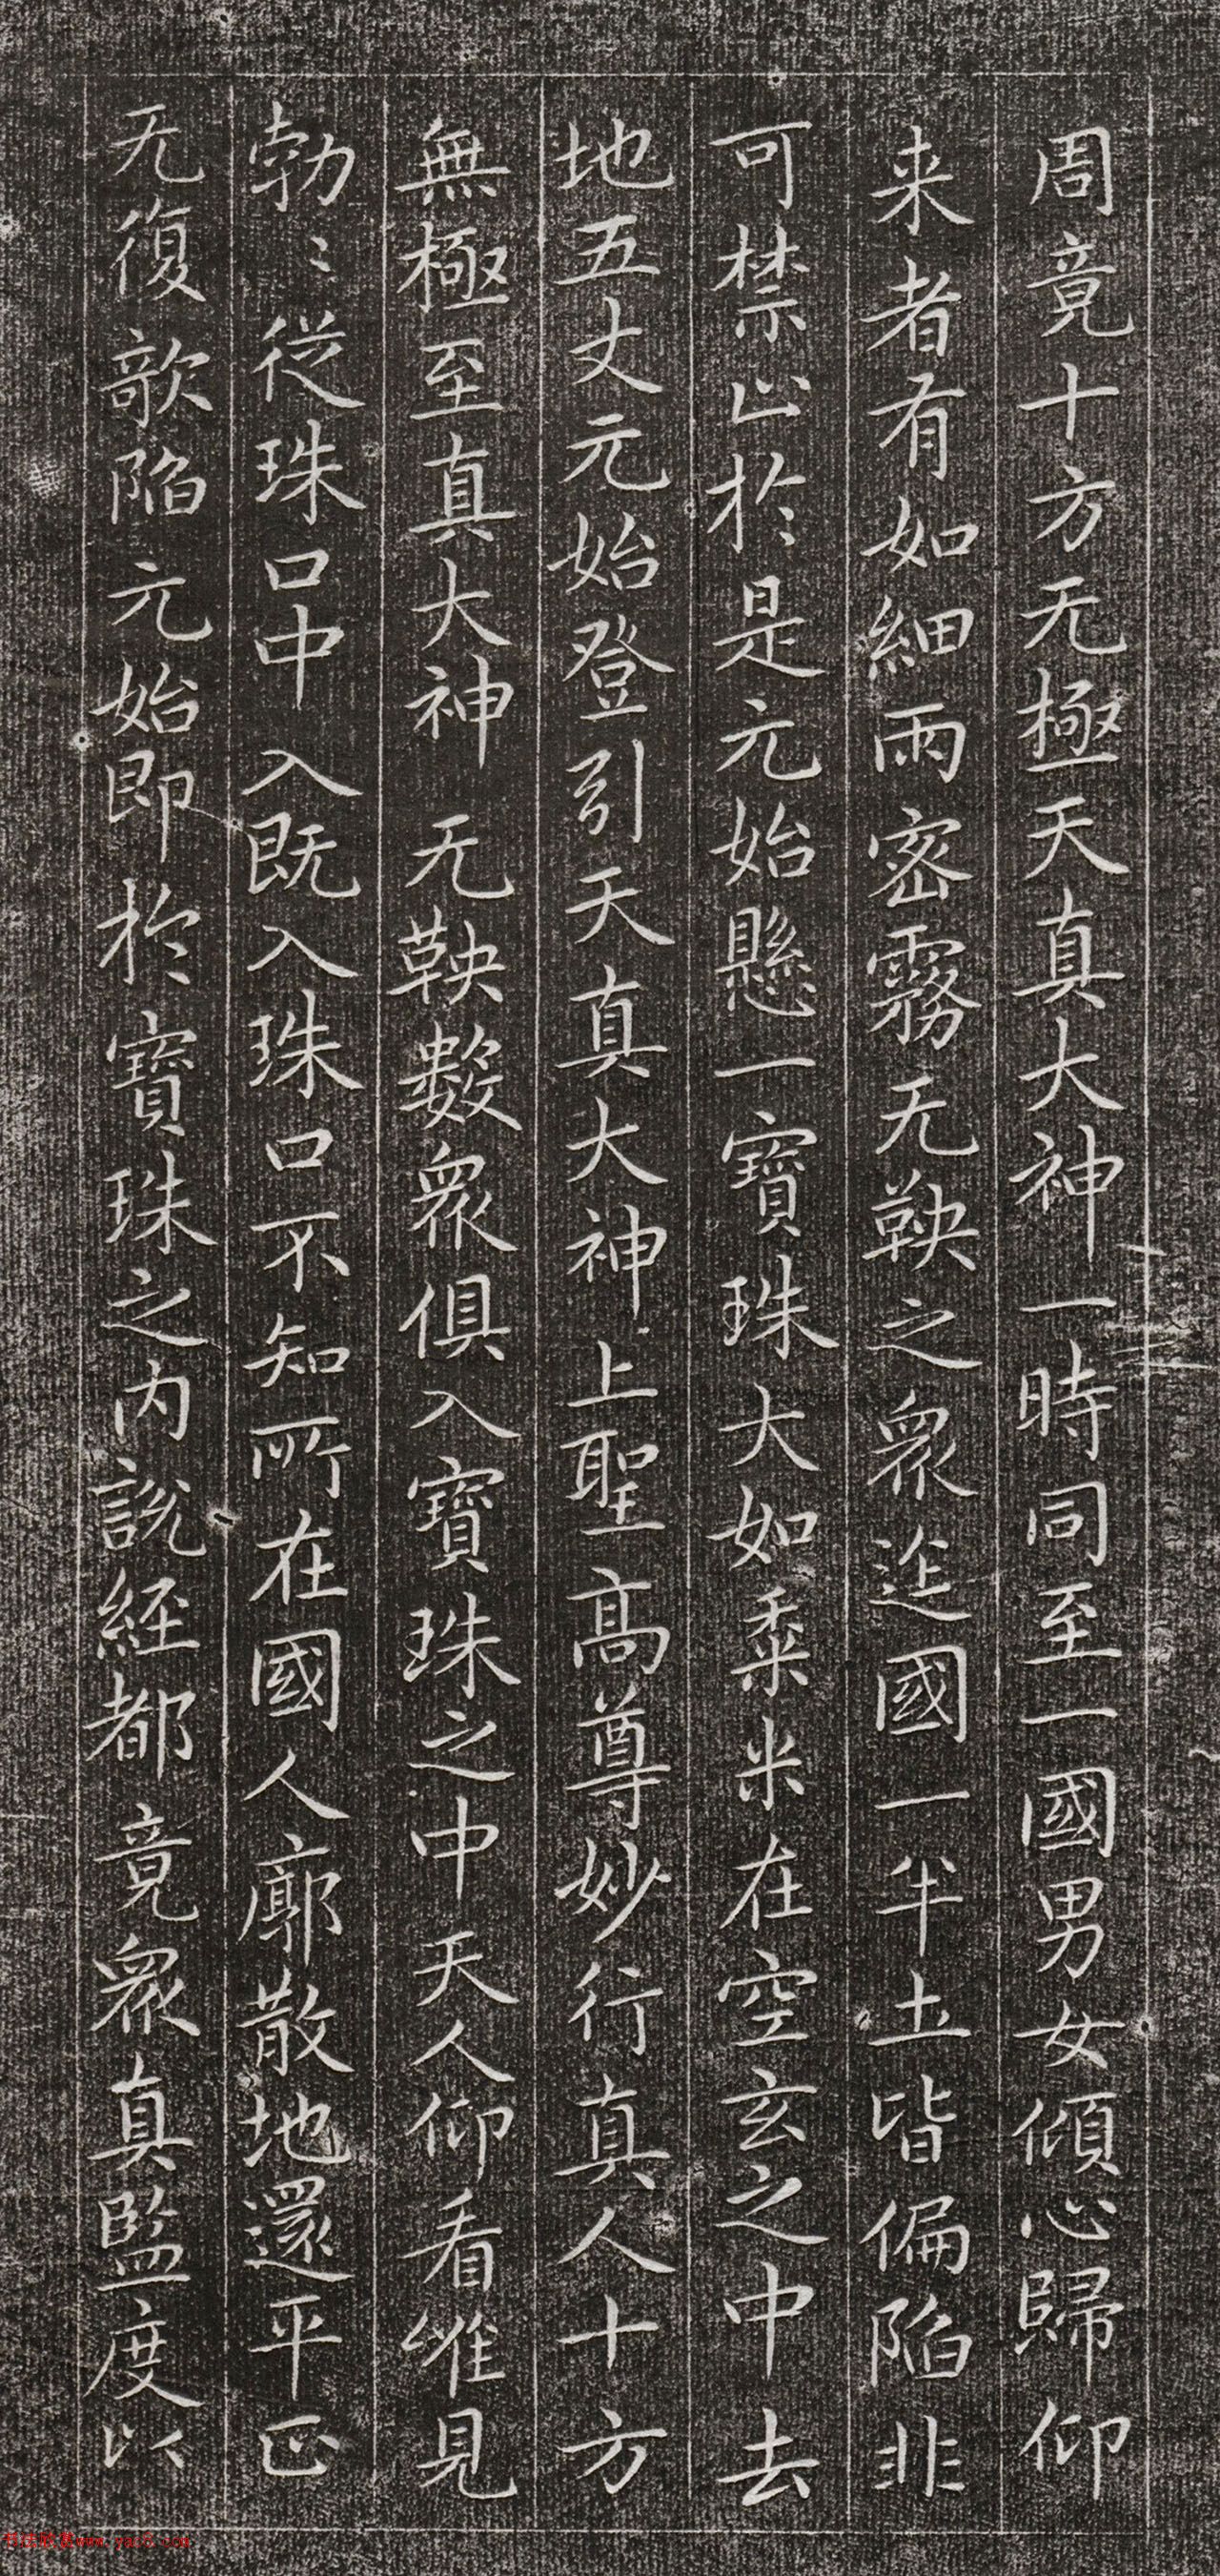 周竟十方无極天真大神一時同至一國男女傾心歸仰
来者有如細雨密霧无鞅之眾迮國一半土皆偏陷非
可禁止於是元始懸一寶珠大如黍米在空玄之中去
地五丈元始登引天真大神上聖高尊妙行真人十方
無極至真大神无鞅數眾俱入寶珠之中天人仰看唯見
勃〻從珠口中入既入珠口不知所在國人廓散地還平正
无復欹陷元始即於寶珠之内說經都竟眾真監度以